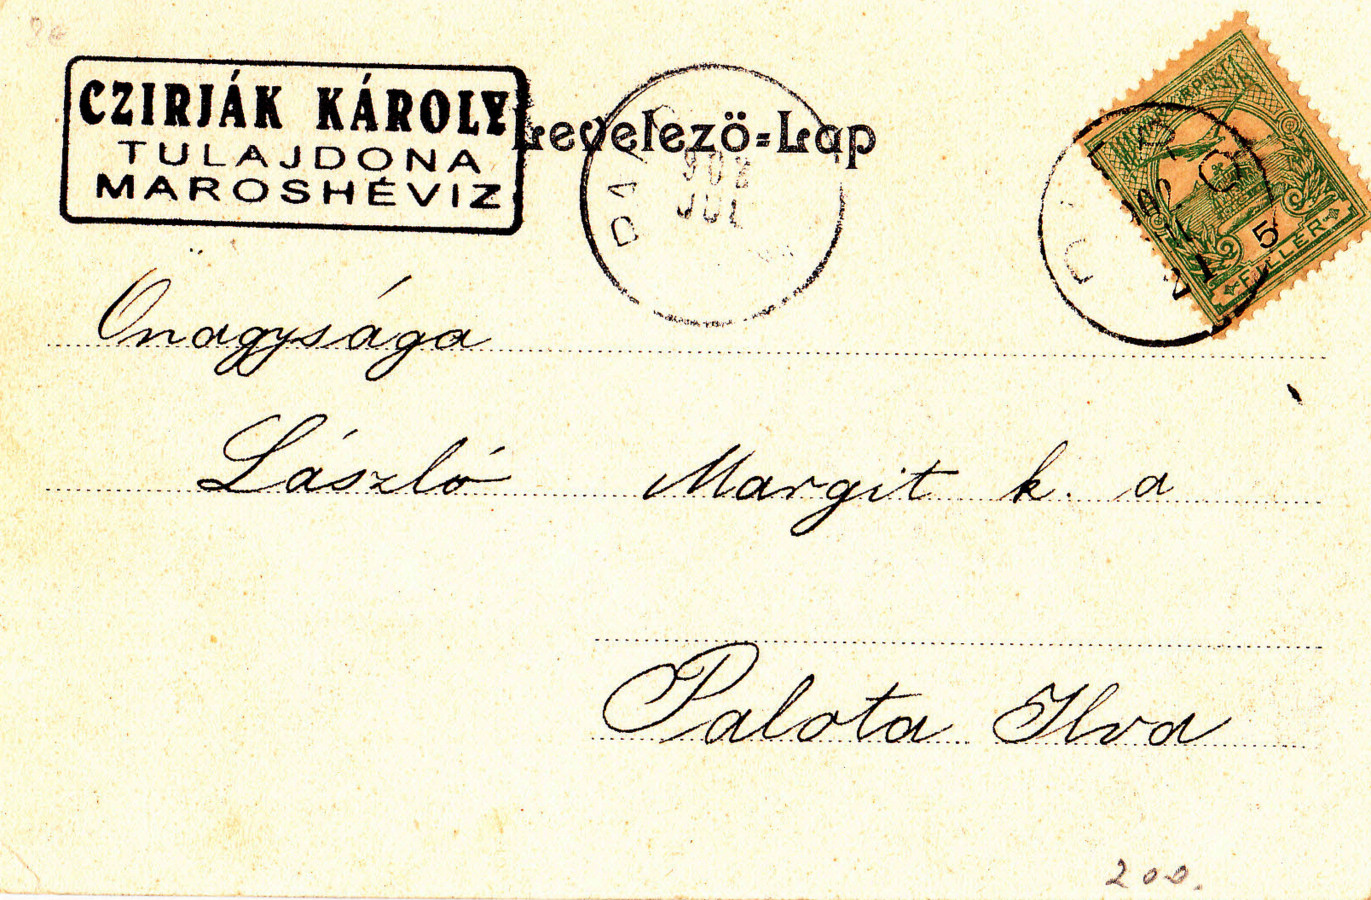 CZIRJÁK KÁROLY
TULAJDONA
MAROSHÉVIZ
Levelező=Lap
902
JUL
5
FILLÉR
Őnagysága
László Margit k. a
Palota Ilva
200.